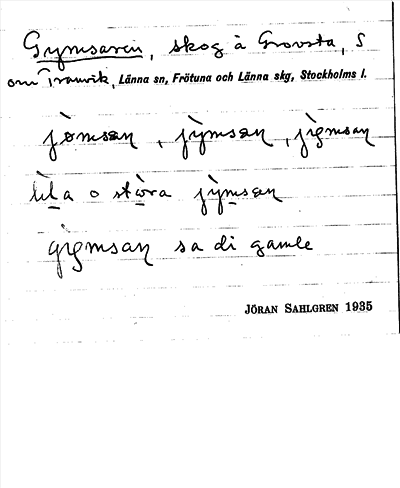 Gymsaren, skog å Grovsta, S
om Tranvik, Länna sn, Frötuna och Länna skg, Stockholms l.
jòmsaɳ, jỳmsaɳ, jìgmsaɳ
lìla o stòra jỳmsaɳ
gìgmsaɳ sa di gamle
JÖRAN SAHLGREN 1935